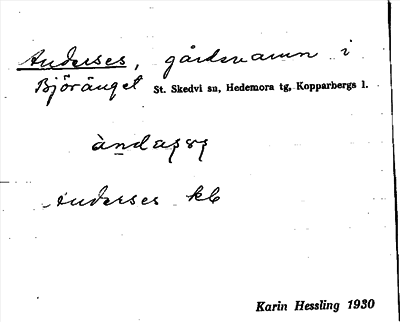 Anderses, gårdsnamn i
Björänget St. Skedvi sn, Hedemora tg, Kopparbergs l.
Anderses kb
Karin Hessling 1930